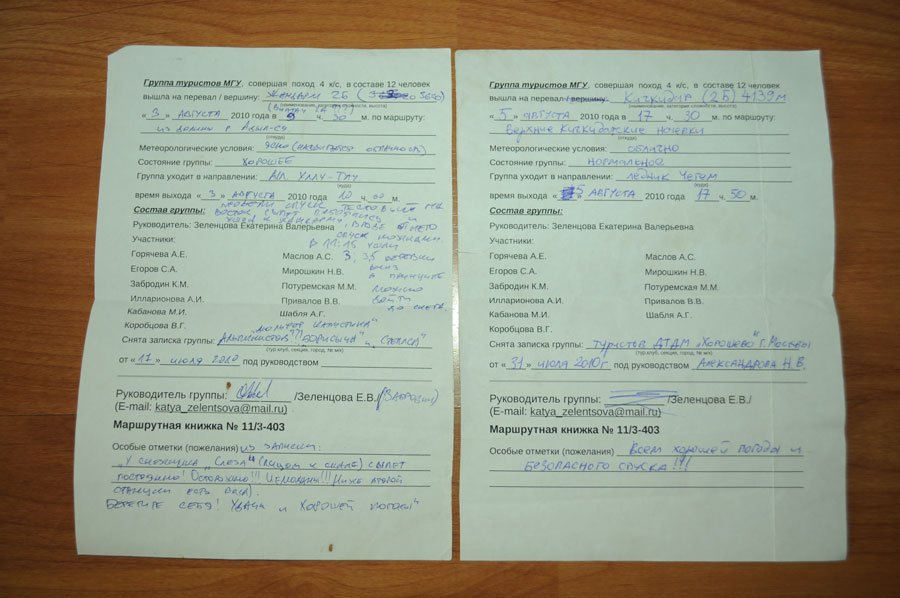 Группа туристов МГУ, совершая поход 4 к/с, в составе 12 человек
вышла на перевал / вершину: 2Б ( 3600)
(наименование, категория сложности, высота)
« 3 » АВГУСТА 2010 года в 9 ч. 30 м. по маршруту:
из долины р. Адыл-су
(откуда)
Метеорологические условия: ЯСНО ( ОБЛАЧНОСТЬ)
Состояние группы: ХОРОШЕЕ
Группа уходит в направлении: А/Л УЛЛУ-ТАУ
(куда)
время выхода « 3 » АВГУСТА 2010 года 10 ч. 00 м.
Состав группы:
Руководитель: Зеленцова Екатерина Валерьевна
Участники:
В 11:15 ушли
Горячева А.Е. Маслов А.С.
Егоров С.А. Мирошкин Н.В.
Забродин К.М. Потуремская М.М. МОЖНО
Илларионова А.И. Привалов В.В.
Кабанова М.И. Шабля А.Г.
Коробцова В.Г.
Снята записка группы: АЛЬПИНИСТОВ
(тур.клуб, секция, город, № м/к)
от « 17 » июля 2010 под руководством
Руководитель группы: /Зеленцова Е.В./ (ЗАБРОДИН)
(E-mail: katya_zelentsova@mail.ru)
Маршрутная книжка № 11/3-403
Особые отметки (пожелания) ИЗ ЗАПИСКИ:
(ЛИЦОМ К СКАЛЕ) СЫПЕТ
ПОСТОЯННО! ОСТОРОЖНО!!! НИЖЕ ВТОРОЙ
СТАНЦИИ ЕСТЬ
БЕРЕГИТЕ СЕБЯ! УДАЧИ И ХОРОШЕЙ ПОГОДЫ"
Группа туристов МГУ, совершая поход 4 к/с, в составе 12 человек
вышла на перевал / вершину: КИЧКИДАР (2Б) 4139м
(наименование, категория сложности, высота)
« 5 » АВГУСТА 2010 года в 17 ч. 30 м. по маршруту:
ВЕРХНИЕ КИЧКИДАРСКИЕ НОЧЕВКИ
(откуда)
Метеорологические условия: ОБЛАЧНО
Состояние группы: НОРМАЛЬНОЕ
Группа уходит в направлении: ЛЕДНИК ЧЕГЕМ
(куда)
время выхода « 5 » АВГУСТА 2010 года 17 ч. 50 м.
Состав группы:
Руководитель: Зеленцова Екатерина Валерьевна
Участники:
Горячева А.Е. Маслов А.С.
Егоров С.А. Мирошкин Н.В.
Забродин К.М. Потуремская М.М.
Илларионова А.И. Привалов В.В.
Кабанова М.И. Шабля А.Г.
Коробцова В.Г.
Снята записка группы: ТУРИСТОВ ДТДМ „ХОРОШЕВО" Г. МОСКВЫ
(тур.клуб, секция, город, № м/к)
от « 31 » ИЮЛЯ 2010г под руководством АЛЕКСАНДРОВА Н.В.
Руководитель группы: /Зеленцова Е.В./
(E-mail: katya_zelentsova@mail.ru)
Маршрутная книжка № 11/3-403
Особые отметки (пожелания) ВСЕМ ХОРОШЕЙ ПОГОДЫ И
БЕЗОПАСНОГО СПУСКА!!!